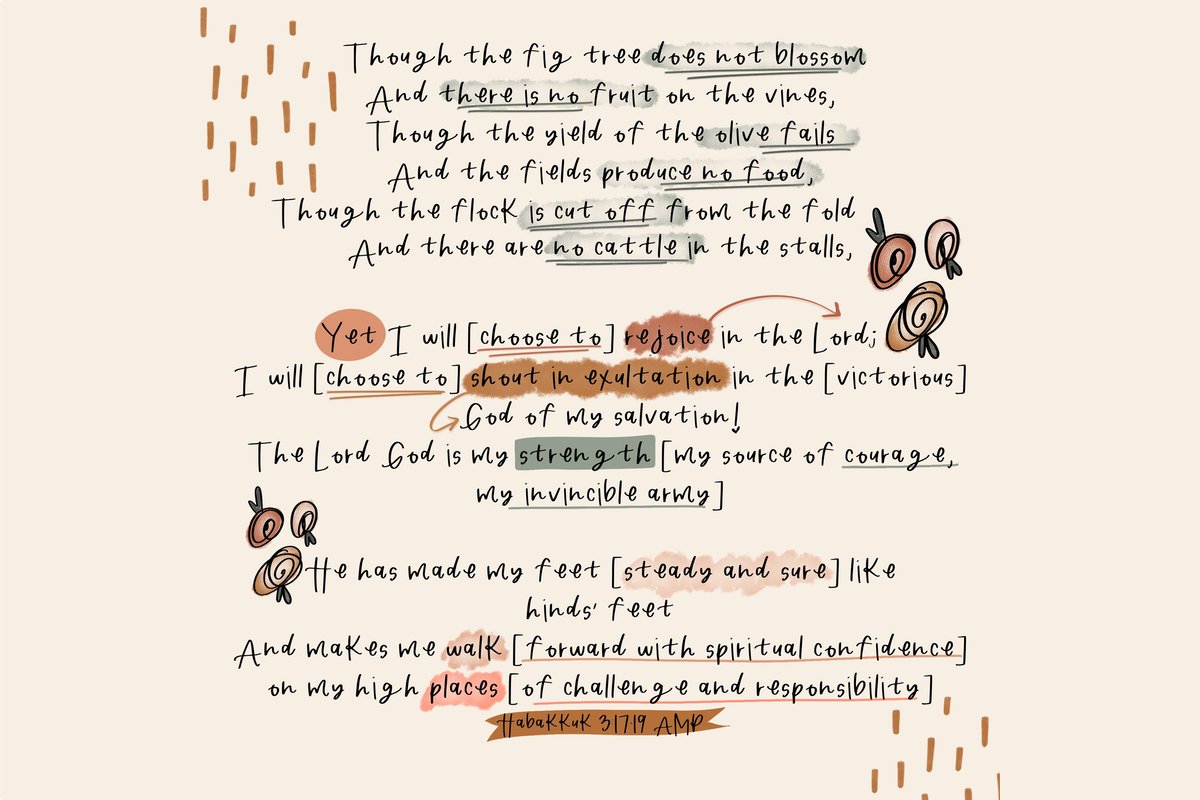 Though the fig tree does not blossom
And there is no fruit on the vines,
Though the yield of the olive fails
And the fields produce no food,
Though the flock is cut off from the fold
And there are no cattle in the stalls,
Yet I will [choose to] rejoice in the Lord;
I will [choose to] shout in exultation in the [victorious]
God of my salvation!
The Lord God is my strength [my source of courage,
my invincible army]
He has made my feet [steady and sure] like
hinds' feet
And makes me walk [forward with spiritual confidence]
on my high places [of challenge and responsibility]
Habakkuk 3:17-19 AMP